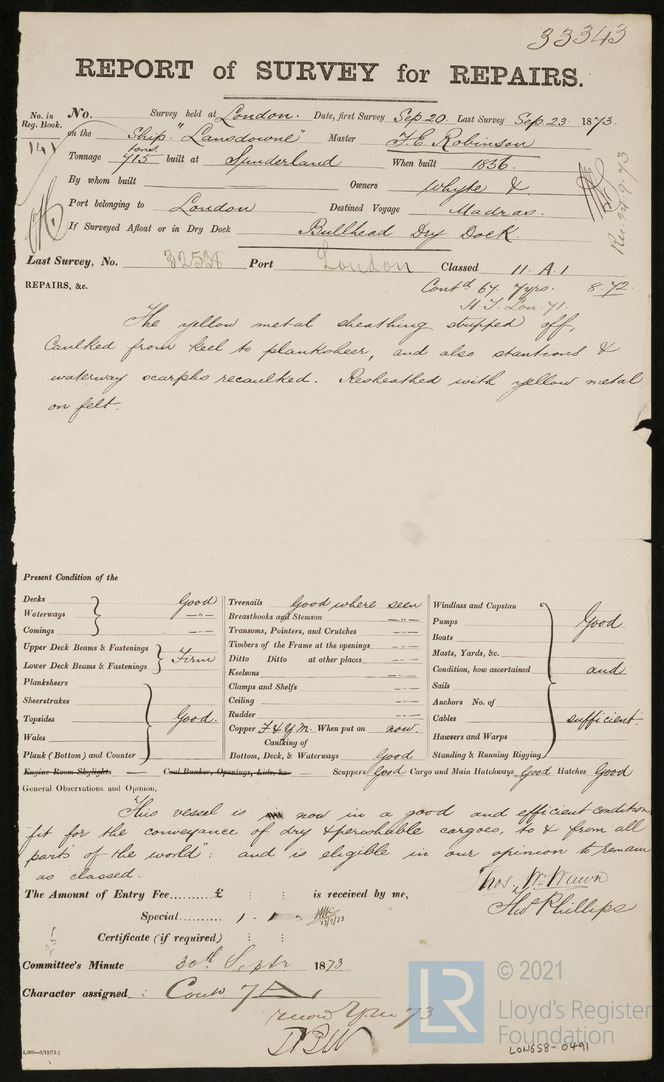 33343
REPORT of SURVEY for REPAIRS.
No. in Reg. Book. No. Survey held at London. Date, first Survey Sep. 20 Last Survey Sep. 23 1873.
141 on the Ship "Lansdowne" Master F. E. Robinson
Tonnage 715 tons built at Sunderland When built 1836.
By whom built Owners Whyte &
Port belonging to London Destined Voyage Madras.
If Surveyed Afloat or in Dry Dock Bullhead Dry Dock.
Last Survey, No. 32538 Port London Classed 11. A.1
REPAIRS, &c. Contd 67. 7yrs. 8.72
Lon. 71.
The yellow metal sheathing stripped off,
Caulked from keel to planksheer, and also stantions &
waterway scarphs recaulked. Resheathed with yellow metal
on felt.
Present Condition of the
Decks Good
Waterways "
Comings
Upper Deck Beams & Fastenings Firm
Lower Deck Beams & Fastenings
Planksheers
Sheerstrakes
Topsides Good.
Wales
Plank (Bottom) and Counter
Treenails Good where seen
Breasthooks and Stemson "
Transoms, Pointers, and Crutches "
Timbers of the Frame at the openings "
Ditto Ditto at other places "
Keelsons "
Clamps and Shelfs "
Ceiling "
Rudder "
Copper F & Y.M. When put on now.
Caulking of
Bottom, Deck, & Waterways Good
Windlass and Capstan
Pumps Good
Boats
Masts, Yards, &c.
Condition, how ascertained and
Sails
Anchors No. of
Cables sufficient.
Hawsers and Warps
Standing & Running Rigging
Engine Room Skylights Coal Bunker, Openings, Lids, &c Scuppers Good Cargo and Main Hatchways Good Hatches Good
General Observations and Opinion,
"This vessel is now in a good and efficient condition
fit for the conveyance of dry & perishable cargoes, to & from all
parts of the world": and is eligible in our opinion to remain
as classed.
Thos. Wm Wawn
Thos Phillips
The Amount of Entry Fee £ : : is received by me,
Special 1 . 1 .
Certificate (if required) : :
Committee's Minute 30th Septr 1873
Character assigned : Contd 7 A 1
73
© 2021
LR Lloyd's Register
Foundation
LON658-0491